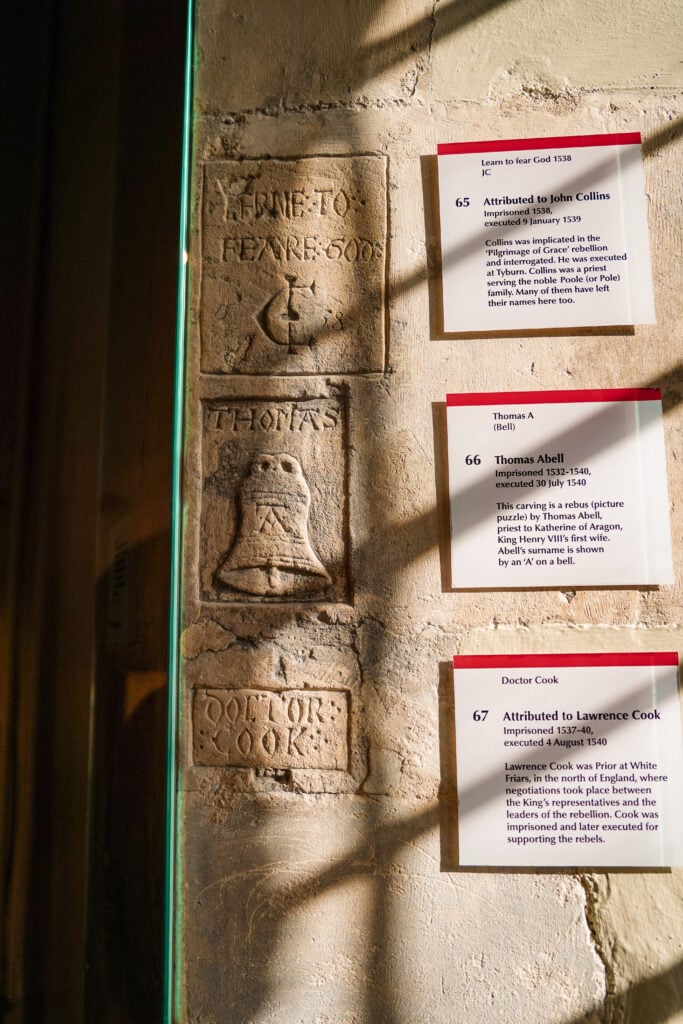 LERNE·TO:
FEARE:GOD:
IC
38
THOMAS
A
DOCTOR:
:COOK:
Learn to fear God 1538
JC
65 Attributed to John Collins
Imprisoned 1538,
executed 9 January 1539
Collins was implicated in the
'Pilgrimage of Grace' rebellion
and interrogated. He was executed
at Tyburn. Collins was a priest
serving the noble Poole (or Pole)
family. Many of them have left
their names here too.
Thomas A
(Bell)
66 Thomas Abell
Imprisoned 1532-1540,
executed 30 July 1540
This carving is a rebus (picture
puzzle) by Thomas Abell,
priest to Katherine of Aragon,
King Henry VIII's first wife.
Abell's surname is shown
by an 'A' on a bell.
Doctor Cook
67 Attributed to Lawrence Cook
Imprisoned 1537-40,
executed 4 August 1540
Lawrence Cook was Prior at White
Friars, in the north of England, where
negotiations took place between
the King's representatives and the
leaders of the rebellion. Cook was
imprisoned and later executed for
supporting the rebels.